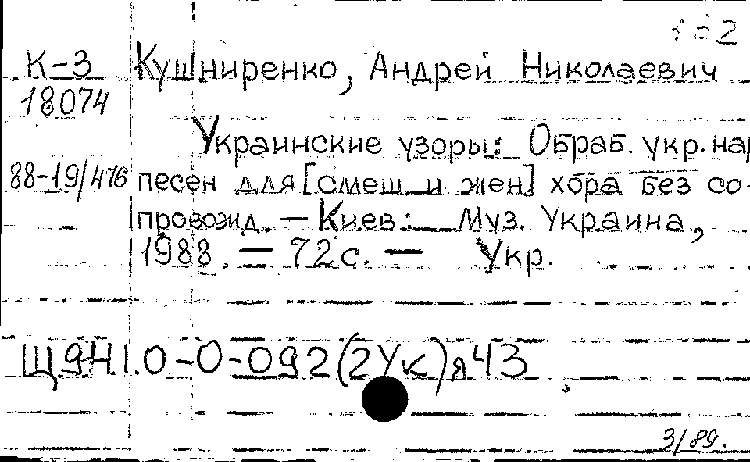 К-3 Кушниренко, Андрей Николаевич
18074
Украинские узоры: Обраб. укр. нар
88-19/476 песен для [смеш. и жен] хора без со-
провожд. — Киев: Муз. Украина,
1988. — 72 с. — Укр.
Щ941.0-0-092(2Ук)я43
3/89.